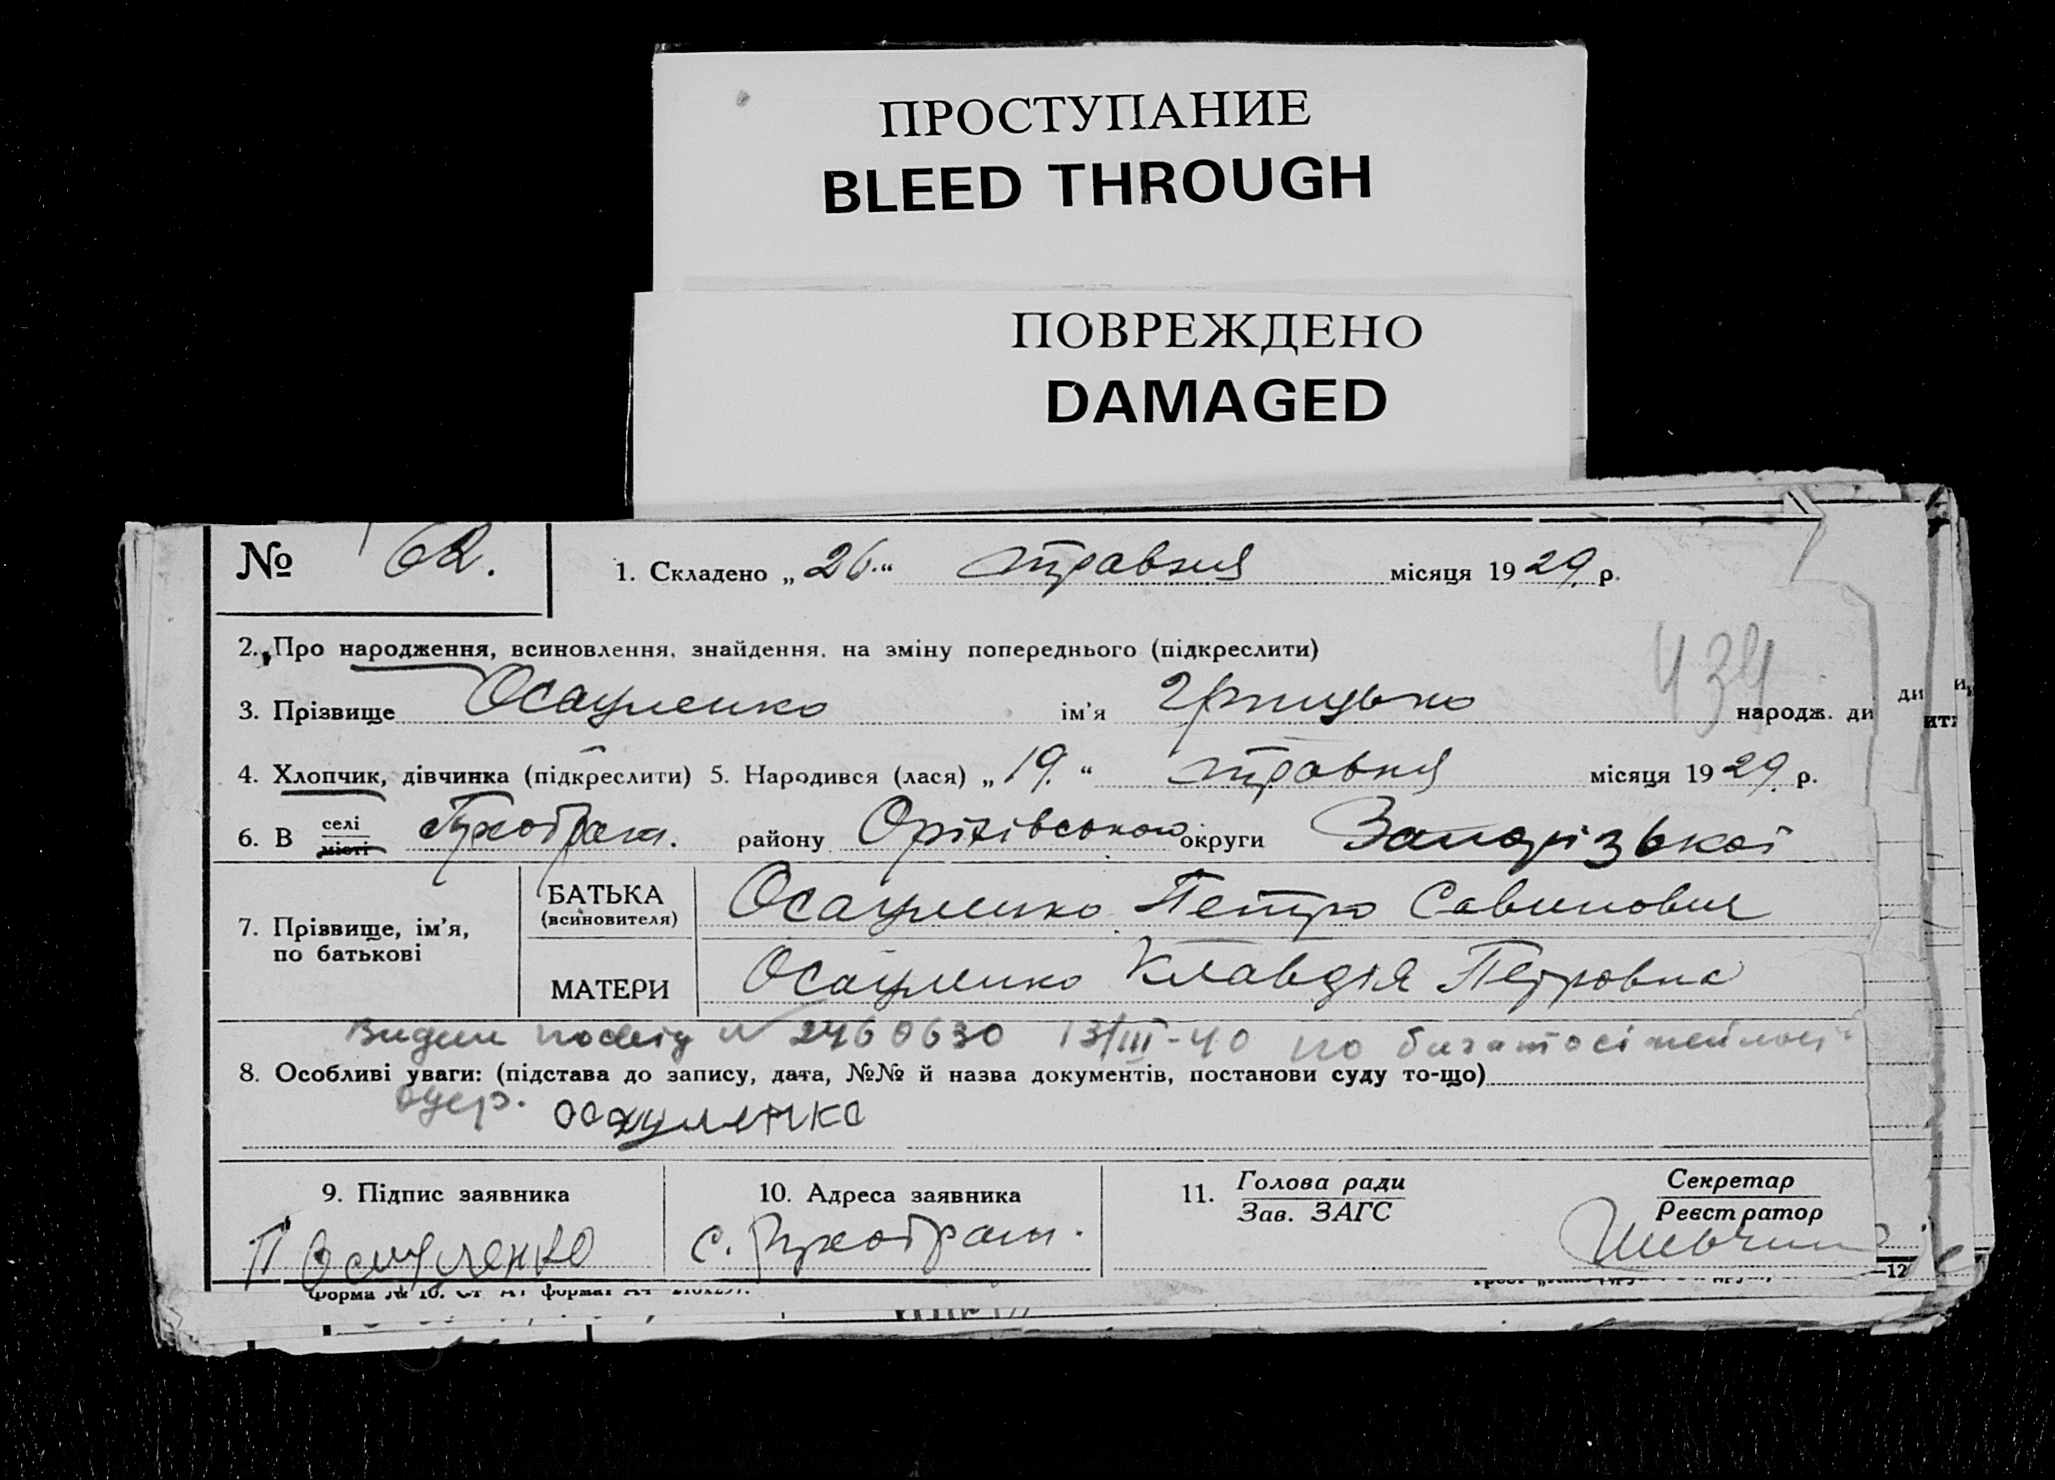 ПРОСТУПАНИЕ
BLEED THROUGH
ПОВРЕЖДЕНО
DAMAGED
№ 62. 1. Складено „26.“ травня місяця 1929. р.
2. Про народження, всиновлення, знайдення, на зміну попереднього (підкреслити)
434
3. Прізвище Осауленко ім'я Грицько народж. ди
4. Хлопчик, дівчинка (підкреслити) 5. Народився (лася) „19.“ травня місяця 1929. р.
6. В селі місті району Оріхівського округи Запорізької
7. Прізвище, ім'я, по батькові
БАТЬКА (всиновителя) Осауленко Петро Савинович
МАТЕРИ Осауленко Клавдія Петровна
Видан посвід N 2460630 13/III-40 по багатосімейност
8. Особливі уваги: (підстава до запису, дата, №№ й назва документів, постанови суду то-що)
одер. Осауленко
9. Підпис заявника 10. Адреса заявника 11. Голова ради Зав. ЗАГС Секретар Реєстратор
П Осауленко с.
Форма № 10.